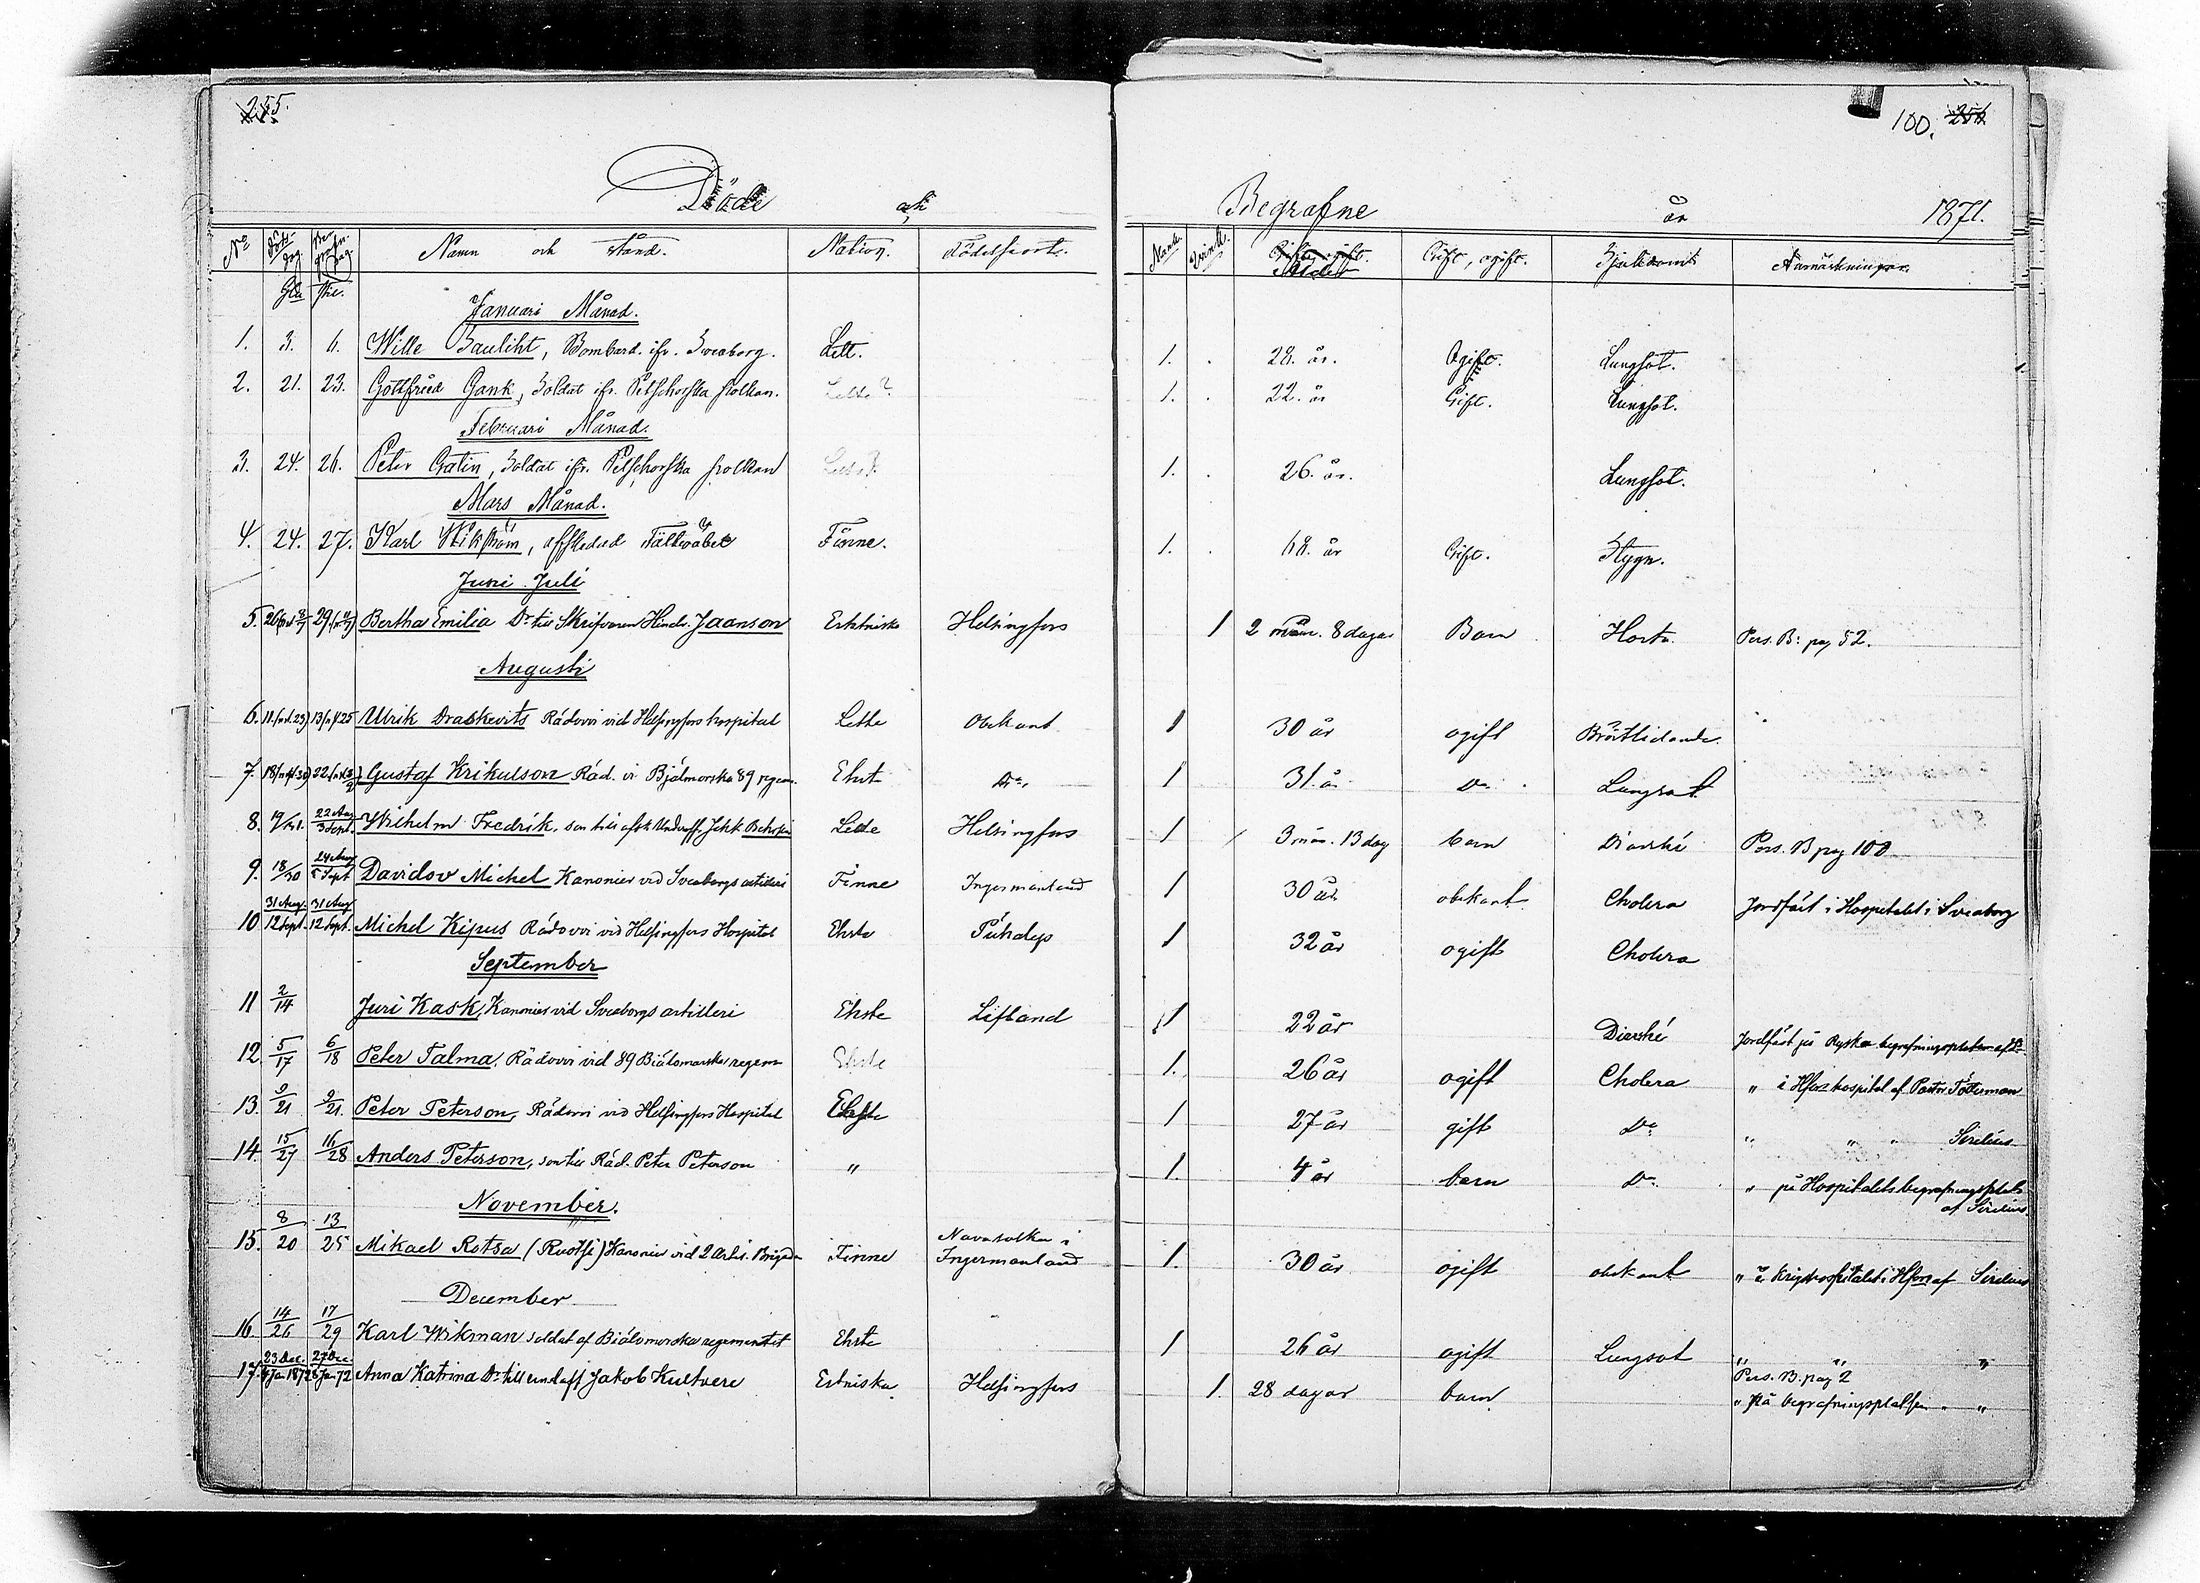 255.
100. 256
Döde och Begrafne år 1871.
No Död. dag. Begrafn. dag. Namn och stånd. Nation. Födelseort. Mank. Qvink. Ålder Gift, ogift. Sjukdomt. Anmärkningar.
Januari Månad.
1. 3. 6. Wille Bauliht, Bombard. ifr. Sveaborg. Lett. 1. 28. år. Ogift. Lungsot.
2. 21. 23. Gottfried Gank, Soldat ifr. Petschorska polken. Lette? 1. 22. år Gift. Lungsot.
Februari Månad.
3. 24. 26. Peter Gratin, Soldat ifr. Petschorska polken 1. 26. år. Lungsot.
Mars Månad.
4. 24. 27. Karl Wikström, afskedad Finne. 1. 68. år Gift. Slagn.
Juni Juli
5. 26 29 Bertha Emilia Dr till Skrifvaren Hindr. Jaanson Estniska Helsingfors 1 2 mån. 8 dagar Barn Hosta Pers. B: pag 52.
Augusti
6. 11. (n.st. 23) 13 (n.st 25 Ulrik Draskevits Rådovoi vid Helsingfors hospital Lette Obekant 1 30 år ogift Bröstlidande.
7. 18 (n.st. 30) 22. Gustaf Krikulson Råd. vi Bjälmorska 89 regem. Ehst Do. 1 31 år Do. Lungsot.
8. 22 Aug 3 Sept. Wilhelm Fredrik, son till afsk. Underoff. Jekk Lette Helsingfors 1 3 mån. 13 dag barn Diarhé Pers. B pag 100
9. 18/30 24 Aug 5 Sept Davidov Michel Kanonier vid Sveaborgs artilleri Finne Ingermanland 1 30 år obekant Cholera Jordfäst i Hospitalet i Sveaborg
10 31 Aug. 12 Sept. 31 Aug 12 Sept. Michel Kipus Rådovoi vid Helsingfors Hospital Ehste Pühalep 1 32 år ogift Cholera
September
11 2/14 Juri Kask, Kanonier vid Sveaborgs artilleri Ehste Lifland 1 22 år Diarhé Jordfäst på Ryska begrafningsplatsen
12. 5/17 6/18 Peter Talma, Rådovoi vid 89 Biälomorska regem Ehste 1. 26 år ogift Cholera „ i Hfors hospital af Pastor Töterman
13. 9/21 9/21. Peter Peterson, Rådovoi vid Helsingfors Hospital Ehste 1 27 år gift Do „ „ „ Sirelius
14. 15/27 16/28 Anders Peterson, son till Råd. Peter Peterson „ 1. 4 år barn Do „ på Hospitalets begrafningsplats
af Sirelius
November.
15. 8/20 13/25 Mikael Rotsa (Ruotsi) Kanonier vid 2 Artil. Brigaden Finne Navasolka i Ingermanland 1. 30 år ogift obekant „ i Krigshospitalet i Hfors af Sirelius
December
16. 14/26 17/29 Karl Wikman soldat af Biälomorska regementet Ehste 1 26 år ogift Lungsot „ „ „
17. 23 Dec. 4 Jan 1872 27 Dec 8 Jan 72 Anna Katrina Dr till underoff. Jakob Kultvere Estniska Helsingfors 1. 28 dagar barn. Pers. B. pag 2
„ På begrafningsplatsen „ „